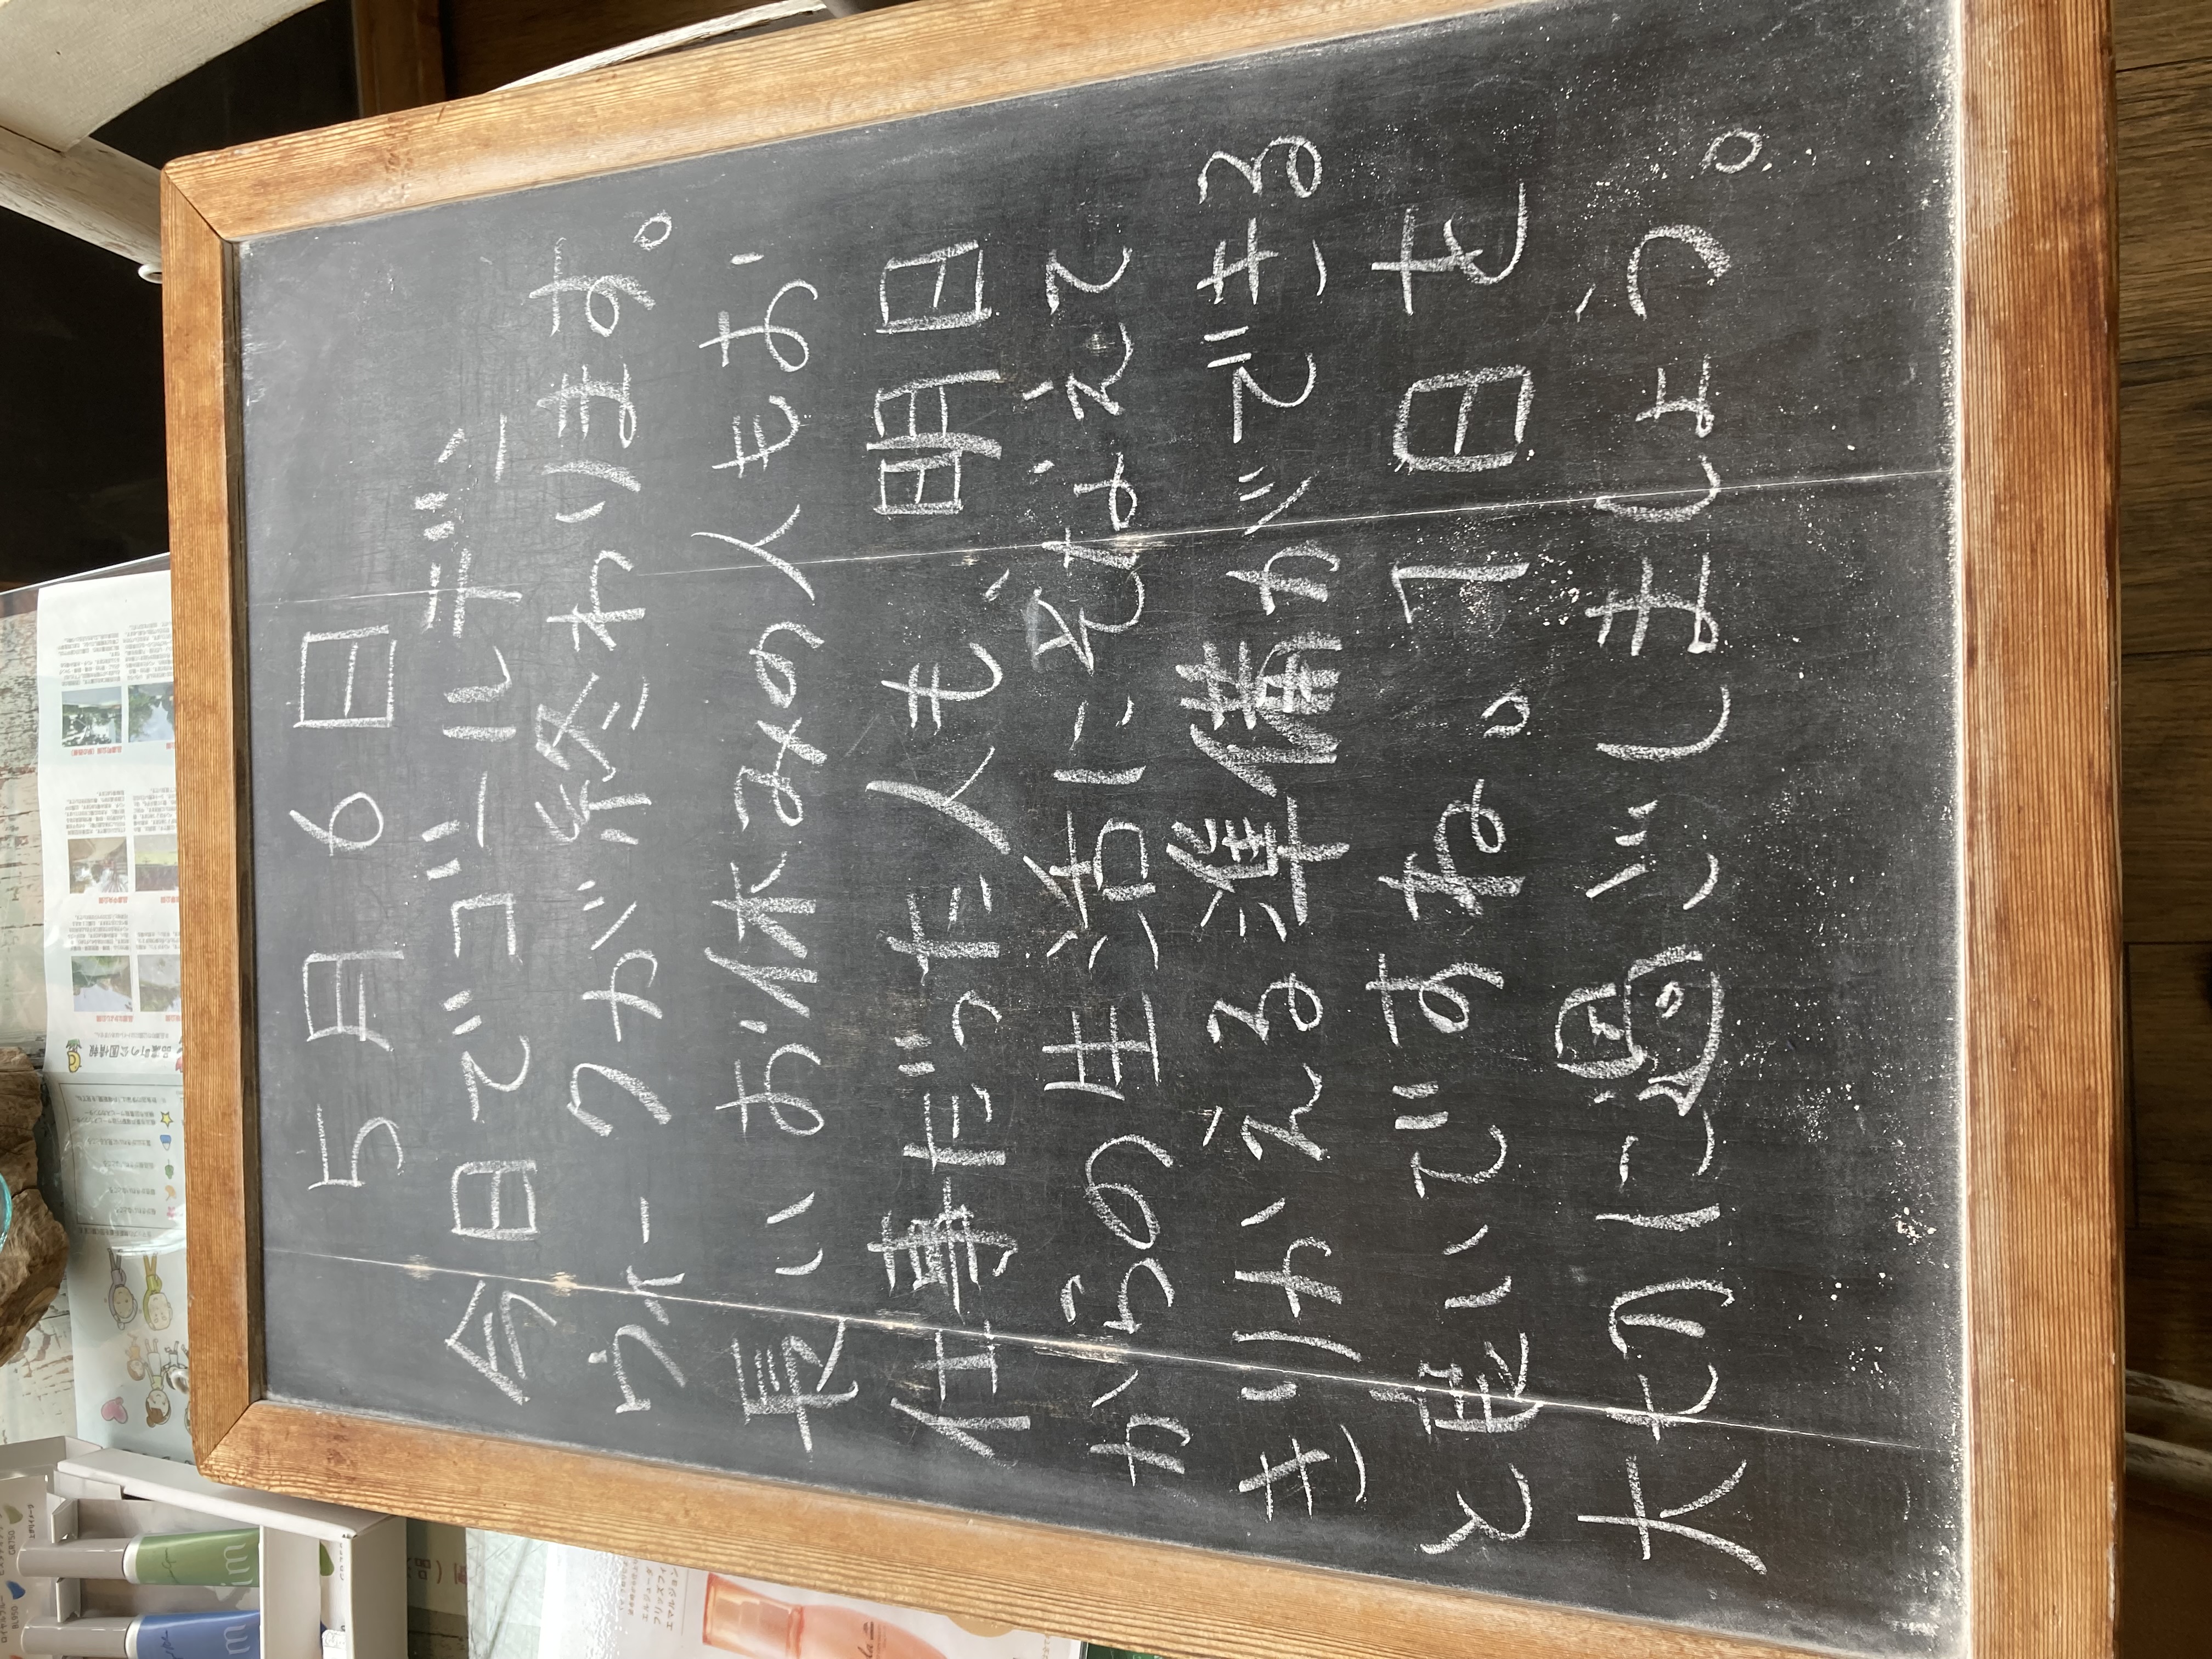 5月6日
今日でゴールデン
ウィークが終わります。
長いお休みの人もお
仕事だった人も、明日
からの生活にそなえて
きりかえる準備ができる
と良いですね。1日を
大切に過ごしましょう。